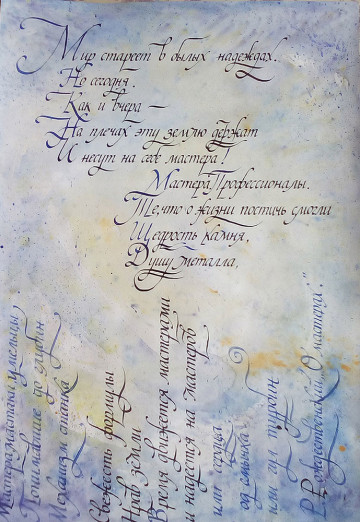 Мир стареет в былых надеждах.
Но сегодня.
Как и вчера —
На плечах эту землю держат
И несут на себе мастера!
Мастера, Профессионалы.
Те, что о жизни постичь смогли
Щедрость камня,
Душу металла,
Свежесть формулы
Нрав земли
Мастера, мастаки умельцы,
Понимавшие до глубин
Механизм станка
или сердца
смычка
или гул турбин
Время движется мастерами
и надеется на мастеров
Р. Рождественский "О мастерах."